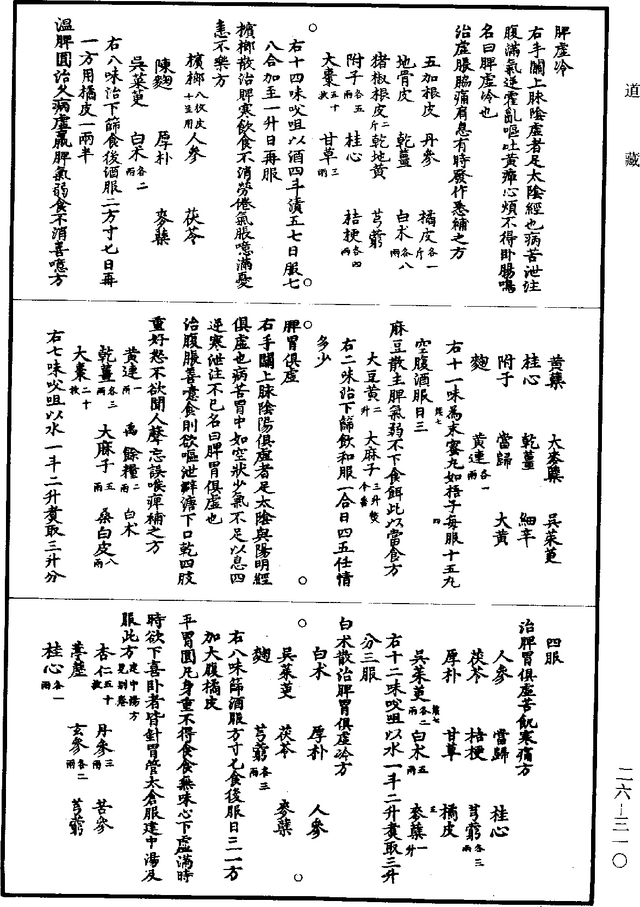 道藏
脾虛冷
右手關上脉陰虛者足太陰經也病苦泄注
腹滿氣逆霍亂嘔吐黃癉心煩不得卧腸鳴
名曰脾虛冷也
治虛脹脇痛肩息有時發作悉補之方
五加根皮 丹參 橘皮各一斤
地骨皮 乾薑 白术各八兩
猪椒根皮二斤 乾地黃 芎藭
附子各五兩 桂心 桔梗各四兩
大棗五十枚 甘草三兩
右十四味㕮咀以酒四斗漬五七日服七
八合加至一升日再服
檳榔散治脾寒飲食不消勞倦氣脹噫滿憂
恚不樂方
檳榔八枚皮子並用 人參 茯苓
陳麴 厚朴 麥蘖
吳茱萸 白术各二兩
右八味治下篩食後酒服二方寸匕日再
一方用橘皮一兩半
溫脾圓治久病虛羸脾氣弱食不消喜噫方
黃蘗 大麥蘖 吳茱萸
桂心 乾薑 細辛
附子 當歸 大黃
麴 黃連各一兩
右十一味為末蜜丸如梧子每服十五丸
空腹酒服日三
麻豆散主脾氣弱不下食餌此以當食方
大豆黃二升 大麻子三升熬令香
右二味治下篩飲和服一合日四五任情
多少
脾胃俱虛
右手關上脉陰陽俱虛者足太陰與陽明經
俱虛也病苦胃中如空狀少氣不足以息四
逆寒泄注不已名曰脾胃俱虛也
治腹脹善噫食則欲嘔泄澼溏下口乾四肢
重好怒不欲聞人聲忘誤喉痺補之方
黃連一兩 禹餘糧二兩 白术
乾薑各三兩 大麻子五兩 桑白皮八兩
大棗二十枚
右七味㕮咀以水一斗二升煮取三升分
四服
治脾胃俱虛苦飢寒痛方
人參 當歸 桂心
茯苓 桔梗 芎藭各三兩
厚朴 甘草 橘皮
吳茱萸各二兩 白术五兩 麥蘖一升
右十二味㕮咀以水一斗二升煮取三升
分三服
白术散治脾胃俱虛冷方
白术 厚朴 人參
吳茱萸 茯苓 麥蘖
麴 芎藭各三兩
右八味篩酒服方寸匕食後服日三一方
加大腹橘皮
平胃圓凡身重不得食食無味心下虛滿時
時欲下喜卧者皆針胃管太倉服建中湯及
服此方建中湯方見別卷
杏仁五十枚 丹參三兩 苦參
葶藶 玄參各二兩 芎藭
桂心各一兩
二六—三一〇